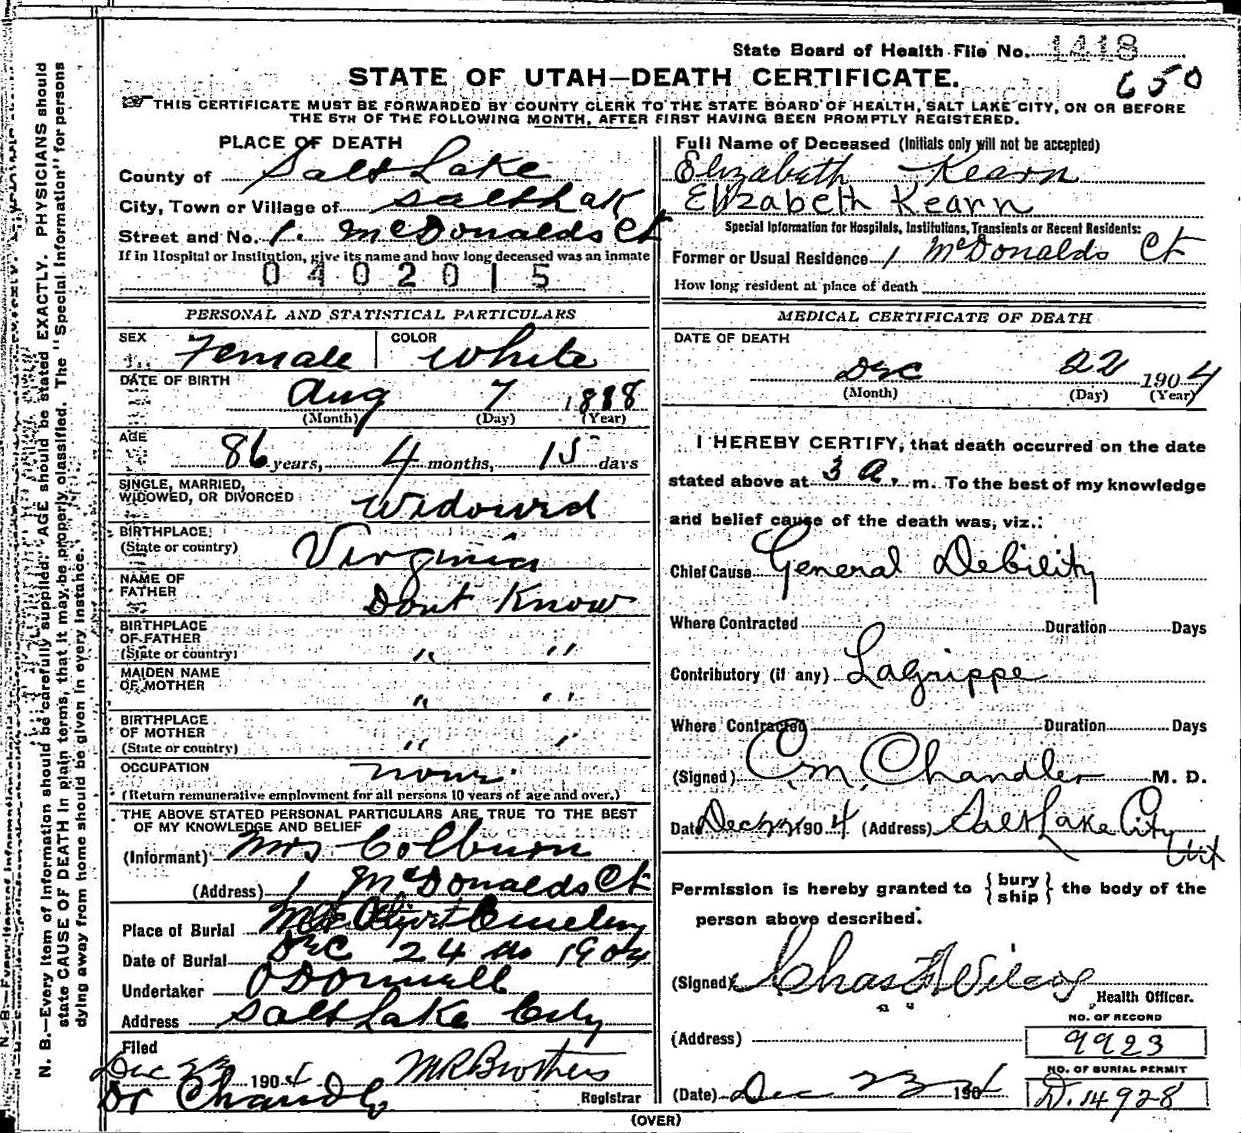 State Board of Health File No. 1418
650
STATE OF UTAH—DEATH CERTIFICATE.
THIS CERTIFICATE MUST BE FORWARDED BY COUNTY CLERK TO THE STATE BOARD OF HEALTH, SALT LAKE CITY, ON OR BEFORE
THE 5TH OF THE FOLLOWING MONTH, AFTER FIRST HAVING BEEN PROMPTLY REGISTERED.
PLACE OF DEATH
County of Salt Lake
City, Town or Village of Salt Lak
Street and No. 1. McDonalds Ct
If in Hospital or Institution, give its name and how long deceased was an inmate
0402015
PERSONAL AND STATISTICAL PARTICULARS
SEX Female COLOR White
DATE OF BIRTH Aug 7 1818
(Month) (Day) (Year)
AGE 86 years, 4 months, 15 days
SINGLE, MARRIED,
WIDOWED, OR DIVORCED Widowed
BIRTHPLACE
(State or country) Virginia
NAME OF
FATHER Dont Know
BIRTHPLACE
OF FATHER
(State or country) " "
MAIDEN NAME
OF MOTHER " "
BIRTHPLACE
OF MOTHER
(State or country) " "
OCCUPATION none
(Return remunerative employment for all persons 10 years of age and over.)
THE ABOVE STATED PERSONAL PARTICULARS ARE TRUE TO THE BEST
OF MY KNOWLEDGE AND BELIEF
(Informant) Mrs Colburn
(Address) 1 McDonalds Ct
Place of Burial Mt Olivet Cemetery
Date of Burial Dec 24 1904
Undertaker O Donnell
Address Salt Lake City
Filed
Dec 23 1904 M R Brothers
Registrar
Dr Chandl
Full Name of Deceased (Initials only will not be accepted)
Elizabeth Kearn
Elizabeth Kearn
Special Information for Hospitals, Institutions, Transients or Recent Residents:
Former or Usual Residence 1 McDonalds Ct
How long resident at place of death
MEDICAL CERTIFICATE OF DEATH
DATE OF DEATH
Dec 22 1904
(Month) (Day) (Year)
I HEREBY CERTIFY, that death occurred on the date
stated above at 3 a. m. To the best of my knowledge
and belief cause of the death was, viz.:
Chief Cause General Debility
Where Contracted Duration Days
Contributory (if any) Lagrippe
Where Contracted Duration Days
(Signed) C. M. Chandler M. D.
Date Dec 22 1904 (Address) Salt Lake City
Permission is hereby granted to { bury ship } the body of the
person above described.
(Signed) Chas F. Wilcox
Health Officer.
(Address)
NO. OF RECORD
9923
NO. OF BURIAL PERMIT
(Date) Dec 23 1904 D. 14928
(OVER)
N. B.—Every item of information should be carefully supplied. AGE should be stated EXACTLY. PHYSICIANS should
state CAUSE OF DEATH in plain terms, that it may be properly classified. The "Special Information" for persons
dying away from home should be given in every instance.